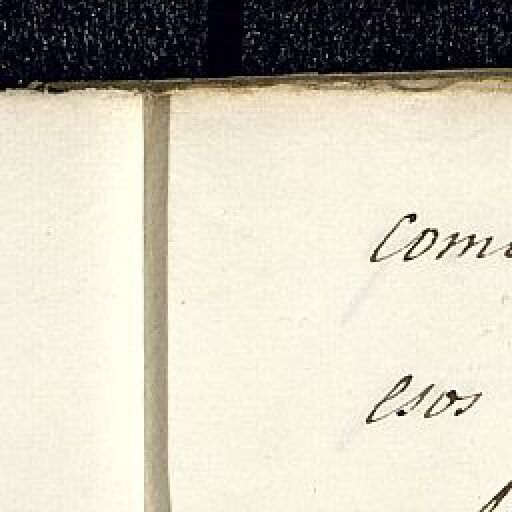 com
esos